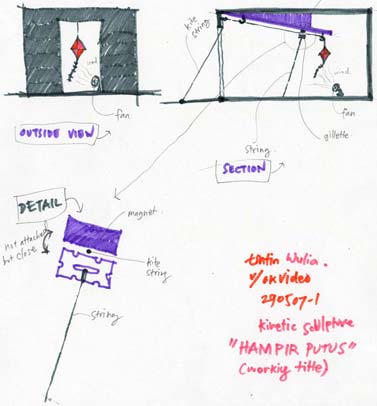 wind
fan
OUTSIDE VIEW
kite
string
wind
fan
gillette
string
SECTION
DETAIL
magnet
not attached
but close
kite
string
string
tintin wulia.
v/ok video
290507-1
kinetic sculpture
"HAMPIR PUTUS"
(workiy title)